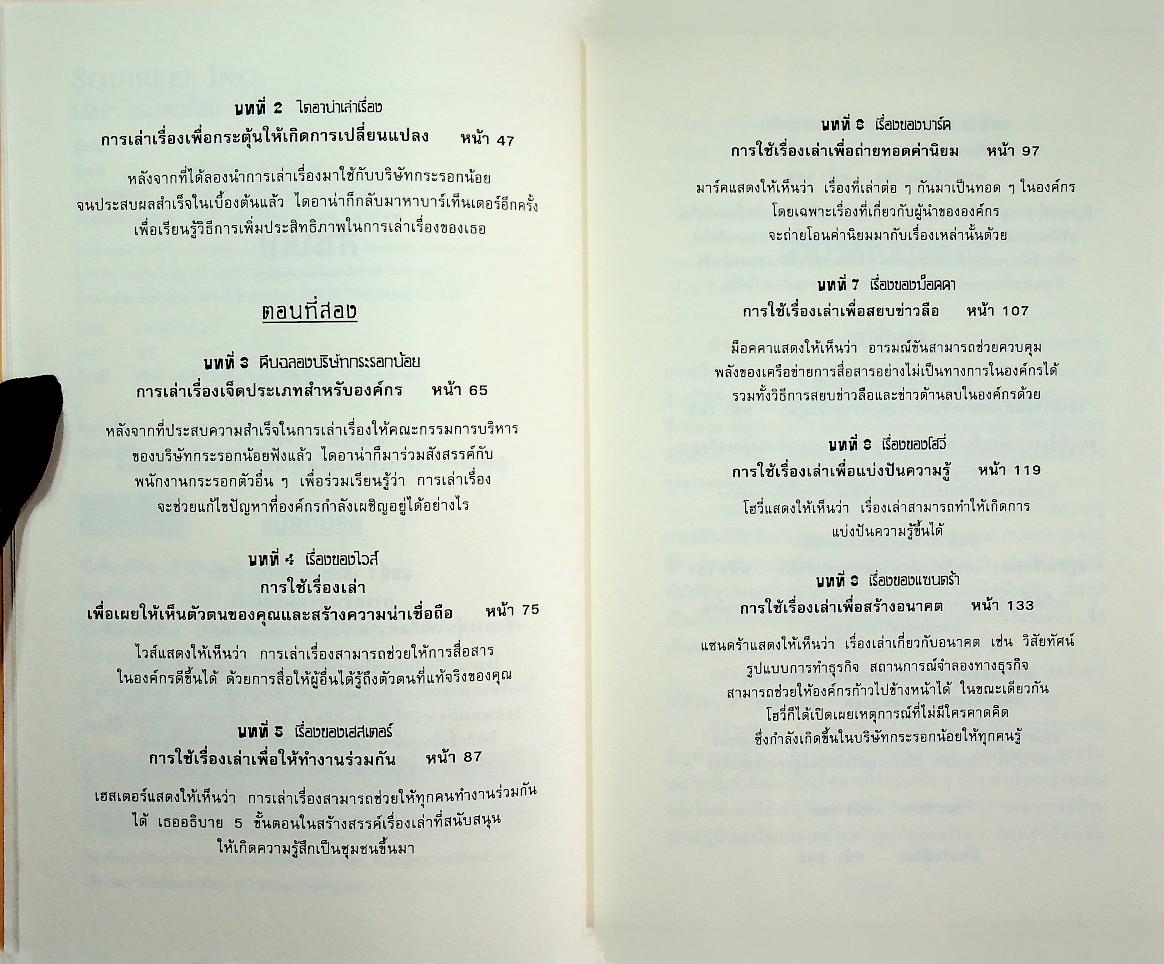 SQUIRREL INC.
บทที่ 2 ไดอาน่าเล่าเรื่อง
การเล่าเรื่องเพื่อกระตุ้นให้เกิดการเปลี่ยนแปลง หน้า 47
หลังจากที่ได้ลองนำการเล่าเรื่องมาใช้กับบริษัทกระรอกน้อย
จนประสบผลสำเร็จในเบื้องต้นแล้ว ไดอาน่าก็กลับมาหาบาร์เท็นเดอร์อีกครั้ง
เพื่อเรียนรู้วิธีการเพิ่มประสิทธิภาพในการเล่าเรื่องของเธอ
ตอนที่สอง
บทที่ 3 คืนฉลองบริษัทกระรอกน้อย
การเล่าเรื่องเจ็ดประเภทสำหรับองค์กร หน้า 65
หลังจากที่ประสบความสำเร็จในการเล่าเรื่องให้คณะกรรมการบริหาร
ของบริษัทกระรอกน้อยฟังแล้ว ไดอาน่าก็มาร่วมสังสรรค์กับ
พนักงานกระรอกตัวอื่น ๆ เพื่อร่วมเรียนรู้ว่า การเล่าเรื่อง
จะช่วยแก้ไขปัญหาที่องค์กรกำลังเผชิญอยู่ได้อย่างไร
บทที่ 4 เรื่องของไวส์
การใช้เรื่องเล่า
เพื่อเผยให้เห็นตัวตนของคุณและสร้างความน่าเชื่อถือ หน้า 75
ไวส์แสดงให้เห็นว่า การเล่าเรื่องสามารถช่วยให้การสื่อสาร
ในองค์กรดีขึ้นได้ ด้วยการสื่อให้ผู้อื่นได้รู้ถึงตัวตนที่แท้จริงของคุณ
บทที่ 5 เรื่องของเฮสเตอร์
การใช้เรื่องเล่าเพื่อให้ทำงานร่วมกัน หน้า 87
เฮสเตอร์แสดงให้เห็นว่า การเล่าเรื่องสามารถช่วยให้ทุกคนทำงานร่วมกัน
ได้ เธออธิบาย 5 ขั้นตอนในสร้างสรรค์เรื่องเล่าที่สนับสนุน
ให้เกิดความรู้สึกเป็นชุมชนขึ้นมา
บทที่ 6 เรื่องของมาร์ค
การใช้เรื่องเล่าเพื่อถ่ายทอดค่านิยม หน้า 97
มาร์คแสดงให้เห็นว่า เรื่องที่เล่าต่อ ๆ กันมาเป็นทอด ๆ ในองค์กร
โดยเฉพาะเรื่องที่เกี่ยวกับผู้นำขององค์กร
จะถ่ายโอนค่านิยมมากับเรื่องเหล่านั้นด้วย
บทที่ 7 เรื่องของม็อคคา
การใช้เรื่องเล่าเพื่อสยบข่าวลือ หน้า 107
ม็อคคาแสดงให้เห็นว่า อารมณ์ขันสามารถช่วยควบคุม
พลังของเครือข่ายการสื่อสารอย่างไม่เป็นทางการในองค์กรได้
รวมทั้งวิธีการสยบข่าวลือและข่าวด้านลบในองค์กรด้วย
บทที่ 8 เรื่องของโฮวี่
การใช้เรื่องเล่าเพื่อแบ่งปันความรู้ หน้า 119
โฮวี่แสดงให้เห็นว่า เรื่องเล่าสามารถทำให้เกิดการ
แบ่งปันความรู้ขึ้นได้
บทที่ 9 เรื่องของแซนดร้า
การใช้เรื่องเล่าเพื่อสร้างอนาคต หน้า 133
แซนดร้าแสดงให้เห็นว่า เรื่องเล่าเกี่ยวกับอนาคต เช่น วิสัยทัศน์
รูปแบบการทำธุรกิจ สถานการณ์จำลองทางธุรกิจ
สามารถช่วยให้องค์กรก้าวไปข้างหน้าได้ ในขณะเดียวกัน
โฮวี่ก็ได้เปิดเผยเหตุการณ์ที่ไม่มีใครคาดคิด
ซึ่งกำลังเกิดขึ้นในบริษัทกระรอกน้อยให้ทุกคนรู้